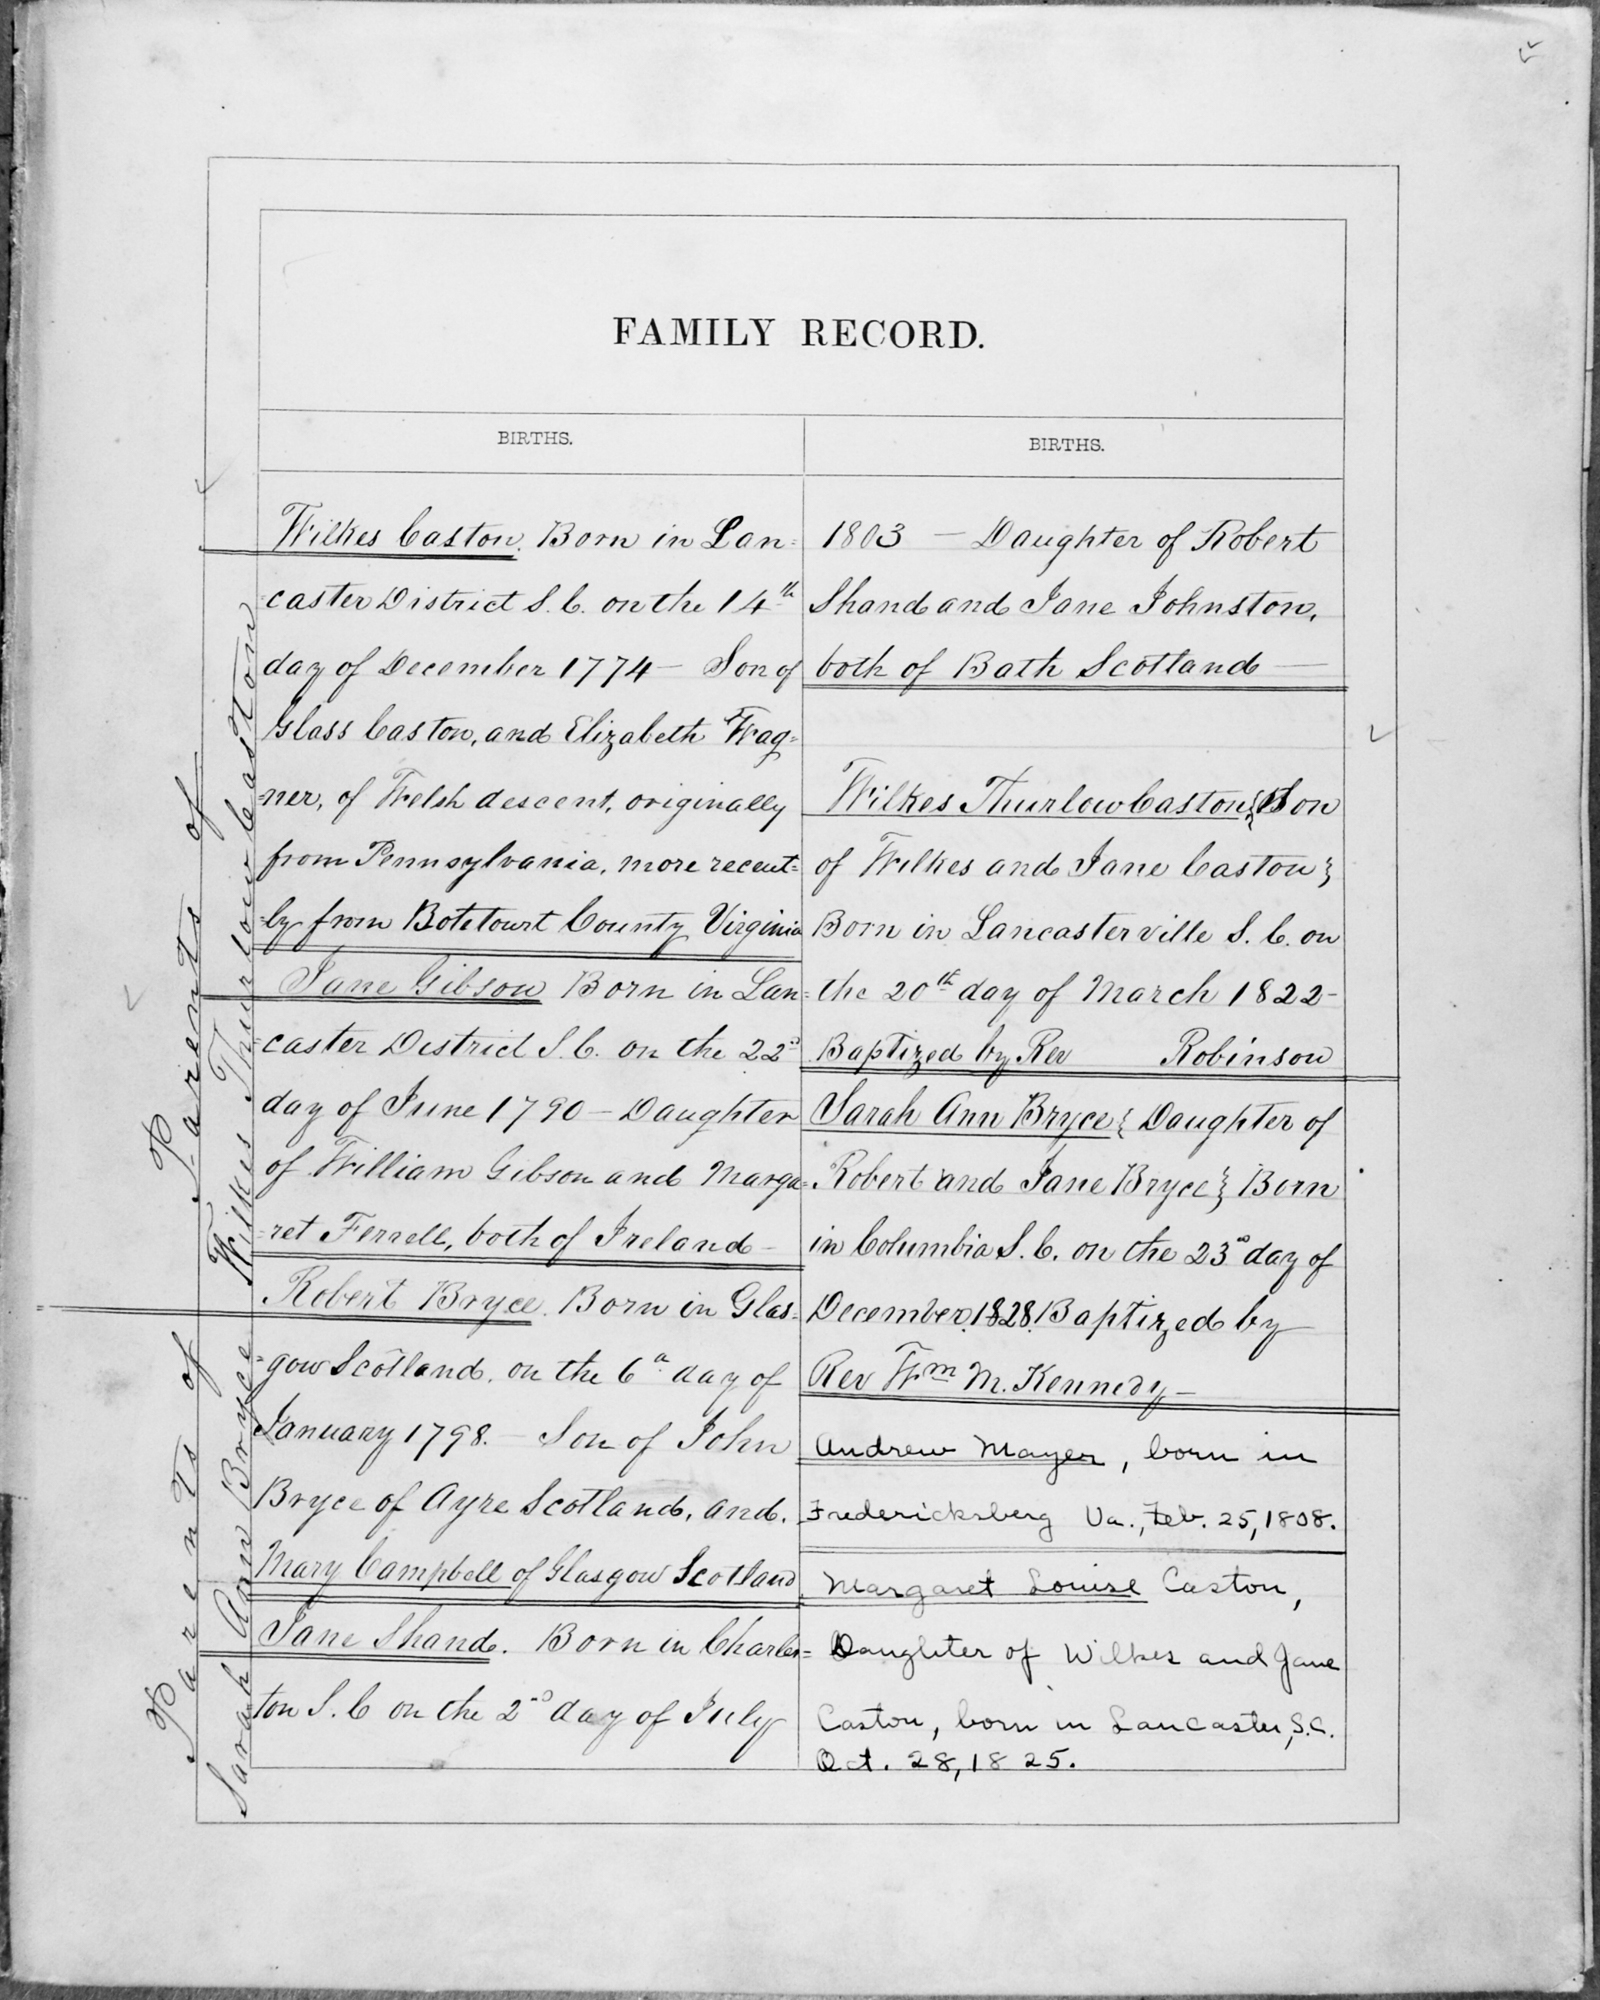 FAMILY RECORD.
BIRTHS.
Wilkes Caston. Born in Lan=
=caster District S. C. on the 14th
day of December 1774 — Son of
Glass Caston, and Elizabeth Wag=
=ner, of Welsh descent, originally
from Pennsylvania, more recent=
=ly from Botetourt County Virginia
Jane Gibson Born in Lan=
=caster District S. C. on the 22d
day of June 1790 — Daughter
of William Gibson and Marga=
=ret Ferrell, both of Ireland —
Robert Bryce. Born in Glas=
=gow Scotland, on the 6th day of
January 1798. — Son of John
Bryce of Ayre Scotland, and.
Mary Campbell of Glasgow Scotland
Jane Shand. Born in Charles=
ton S. C on the 2nd day of July
Parents of
Wilkes Thurlow Caston
Parents of
Sarah Ann Bryce
BIRTHS.
1803 — Daughter of Robert
Shand and Jane Johnston,
both of Bath Scotland —
Wilkes Thurlow Caston } Son
of Wilkes and Jane Caston }
Born in Lancasterville S. C. on
the 20th day of March 1822 –
Baptized by Rev Robinson
Sarah Ann Bryce { Daughter of
Robert and Jane Bryce } Born
in Columbia S. C. on the 23d day of
December, 1828. Baptized by
Rev Wm M. Kennedy —
Andrew Mayer, born in
Fredericksberg Va., Feb. 25, 1808.
Margaret Louise Caston,
Daughter of Wilkes and Jane
Caston, born in Lancaster, S.C.
Oct. 28, 1825.